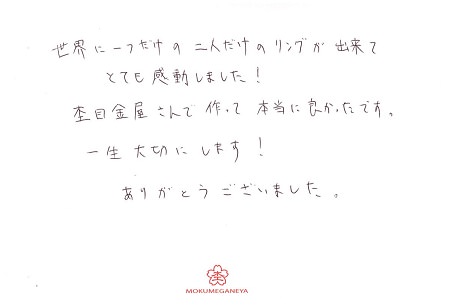 世界に一つだけの二人だけのリングが出来て
とても感動しました!
杢目金屋さんで作って本当に良かったです。
一生大切にします!
ありがとうございました。
MOKUMEGANEYA